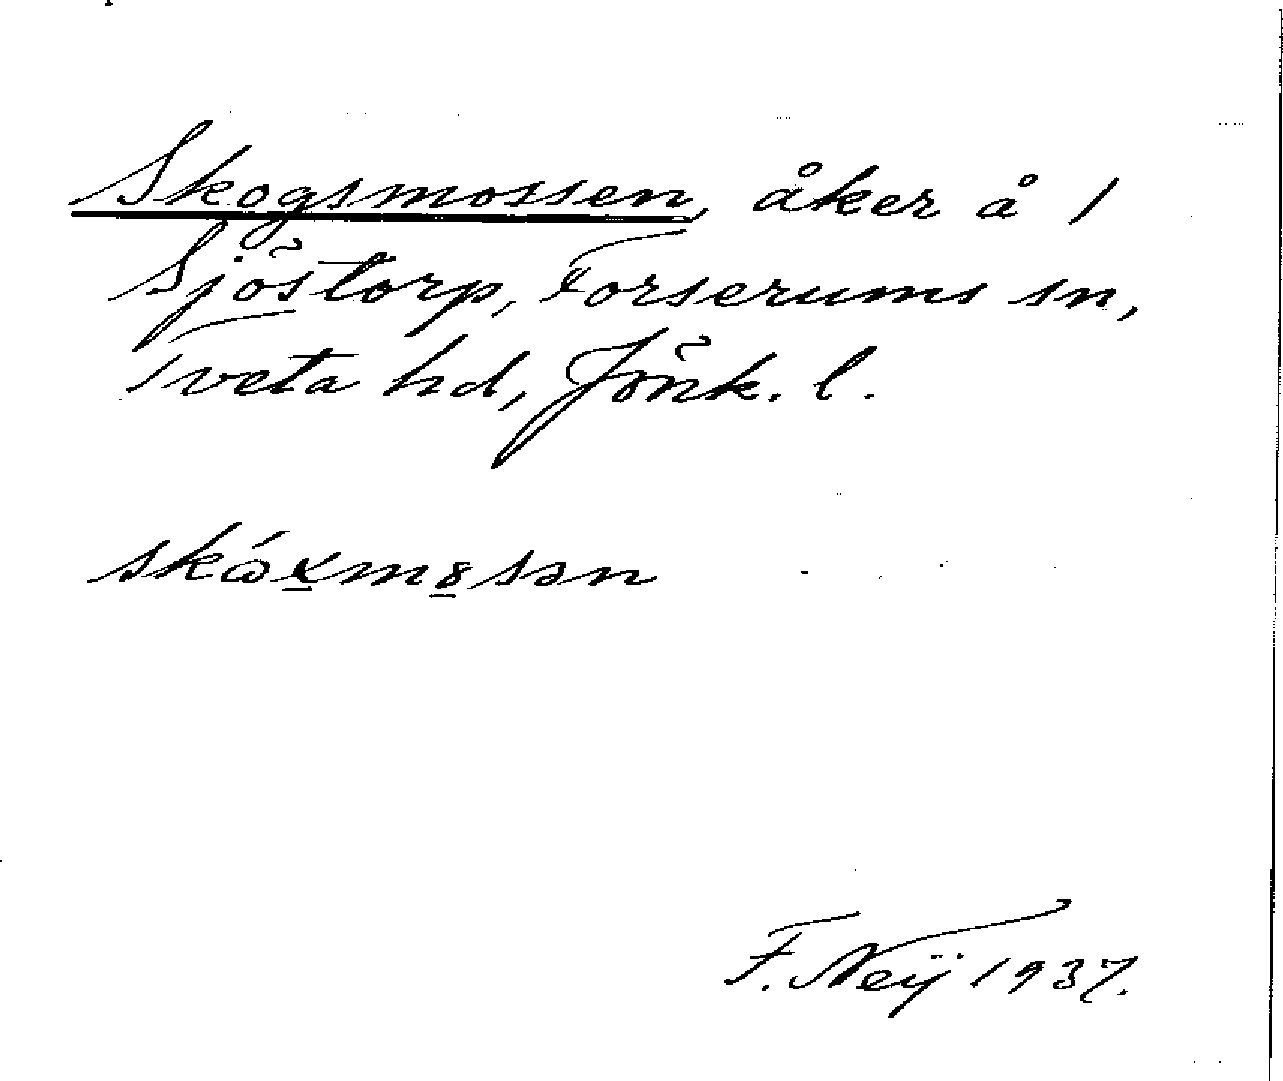 Skogsmossen, åker å 1
Sjöstorp, Forserums sn,
Tveta hd, Jönk. l.
skóx̱mȣ̱sən
F. Neÿ 1937.